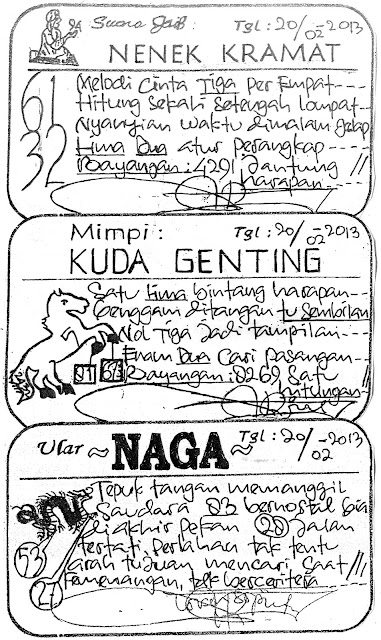 Suara Gaib : Tgl : 20/02-2013
NENEK KRAMAT
61
32
Melodi Cinta Tiga per Empat----
Hitung Sekali Setengah lompat---
Nyanyian waktu dimalam gelap
Lima Dua atur perangkap----
Bayangan : 4291 Jantung //
harapan
Mimpi : Tgl : 20/02-2013
KUDA GENTING
Satu Lima bintang harapan---
Genggam ditangan tu Sembilan
Nol Tiga Jadi tampilan---
Enam Dua Cari pasangan---
Bayangan : 8269 Satu
hitungan //
91
Ular ~ NAGA ~ Tgl : 20/02-2013
Tepuk tangan memanggil
Saudara 83 bernostal gia
di akhir pekan 20 Jalan
, perlahan tak tentu
arah tujuan mencari Saat ///
Kemenangan, tak berceritera
53